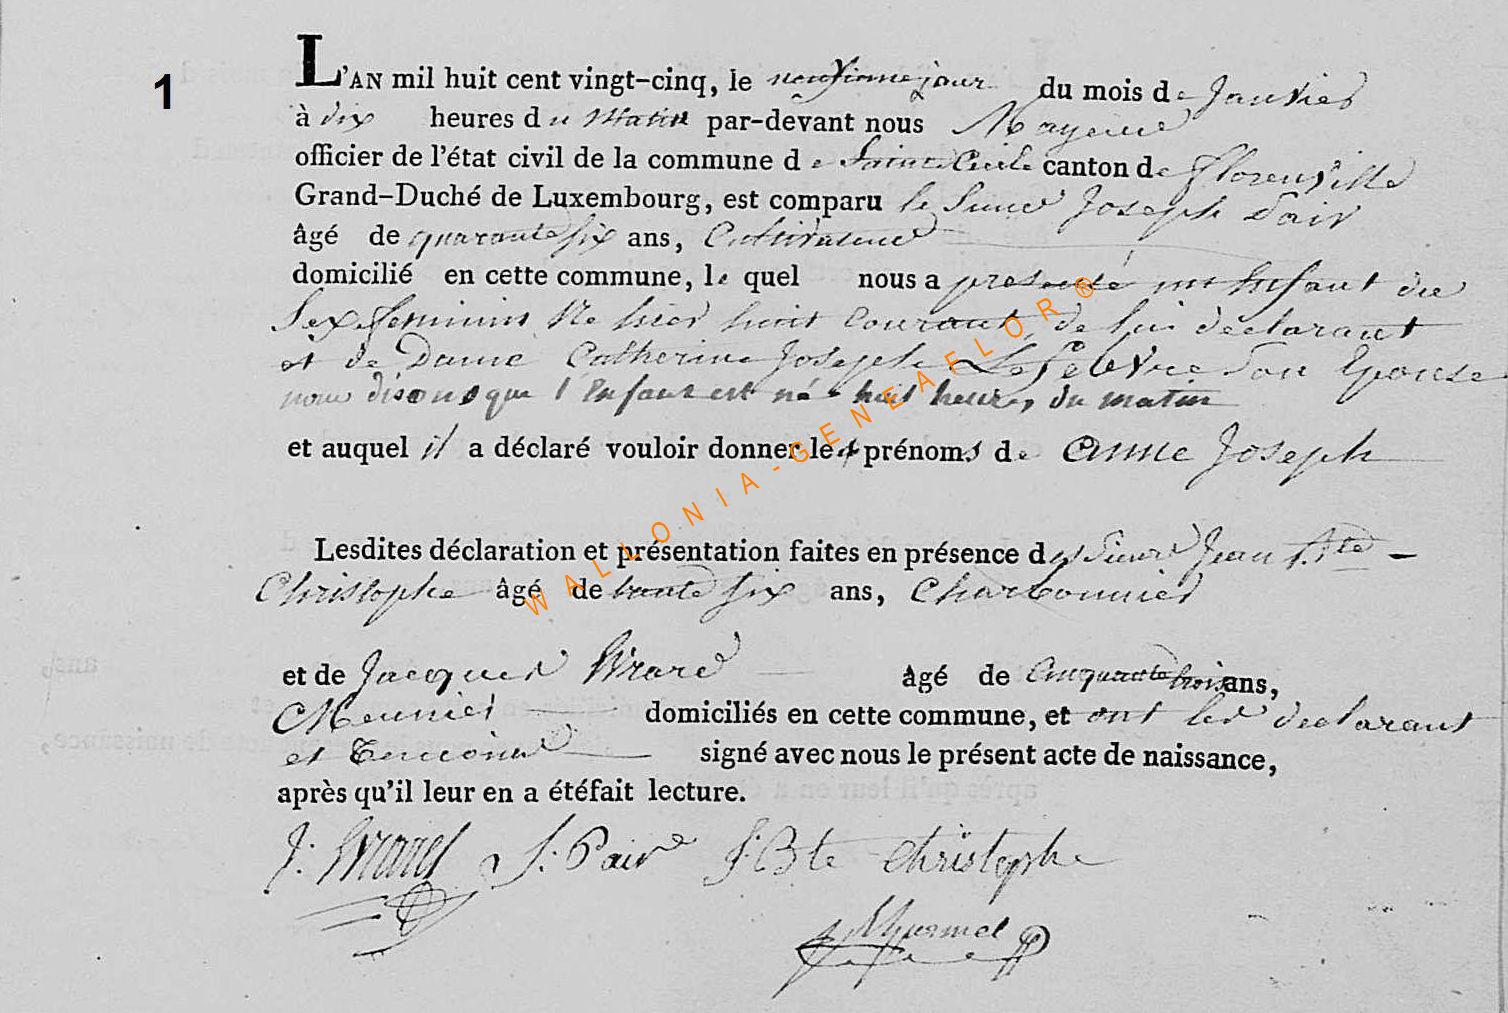 1
L'AN mil huit cent vingt-cinq, le neufieme jour du mois de Janvier
à dix heures du Matin par-devant nous Mayeur
officier de l'état civil de la commune de Sainte Cecile canton de florenville
Grand-Duché de Luxembourg, est comparu le Sieur Joseph
âgé de quarante six ans, Cultivateur
domicilié en cette commune, le quel nous a presenté un Enfant du
Sex feminin Né hier huit Courant, de lui déclarant
et de Dame Catherine Joseph Lefebvre son Epouse
nous disons que l'Enfant est né a huit heures du matin
et auquel il a déclaré vouloir donner les prénoms de Anne Joseph
Lesdites déclaration et présentation faites en présence de Sieur Jean Bte
Christophe âgé de trente six ans, Charbonnier
et de Jacques âgé de Cinquante trois ans,
Meunier domiciliés en cette commune, et ont les declarant
et Temoins signé avec nous le présent acte de naissance,
après qu'il leur en a étéfait lecture.
J: J: Pair J: Bte Christophe
WALLONIA-GENEAFLOR®